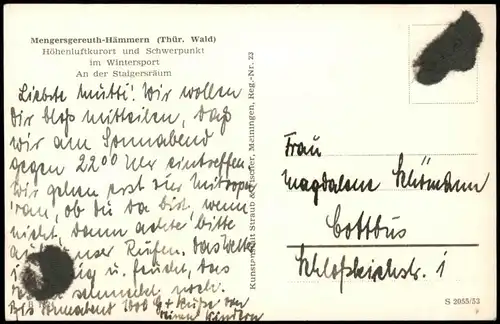 Mengersgereuth-Hämmern (Thür. Wald)
Höhenluftkurort und Schwerpunkt
im Wintersport
An der Staigersräum
Liebste Mutti! Wir wollen
Dir bloß mitteilen, daß
wir am Sonnabend
gegen 22⁰⁰ Uhr eintreffen.
Wir gehen erst zur Mitropa
ran, ob du da bist, wenn
nicht, dann achte bitte
auf unser Rufen. Das Wetter
i und feucht, das
noch.
Bis Sonnabend 1000 G + Küße von
Deinen Kindern
Kunstanstalt Straub & Fischer, Meiningen, Reg.-Nr. 23
Frau
Magdalene Schömann
Cottbus
Schloßkirchstr. 1
S 2055/53